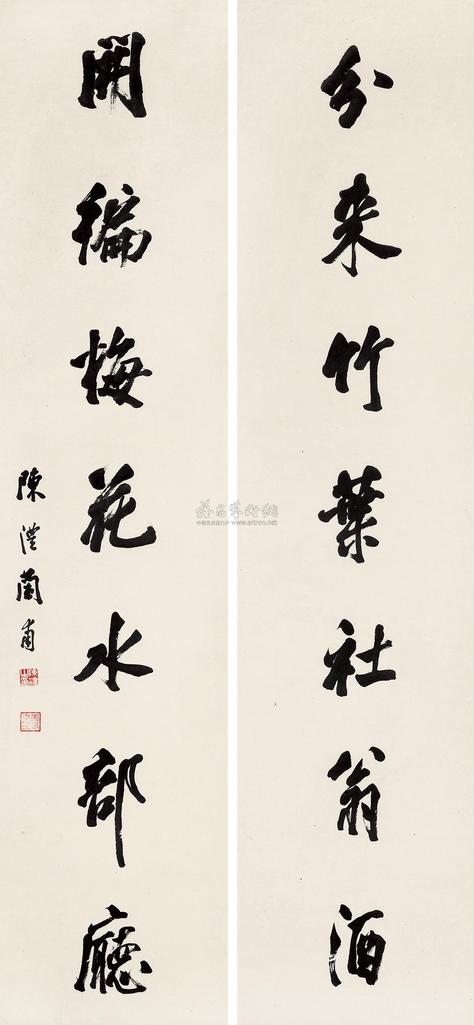 分来竹葉社翁酒
開徧梅花水部廳
陳澧蘭甫
www.artron.net